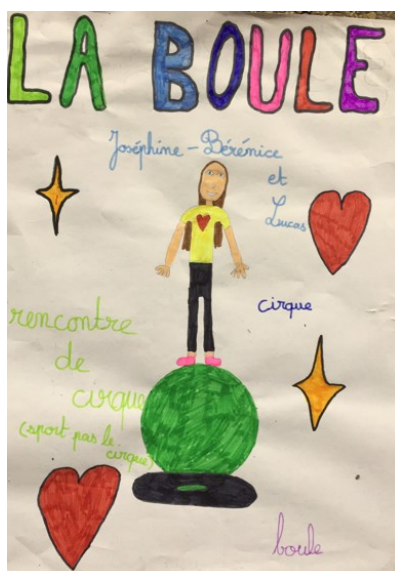 LA BOULE
Joséphine - Bérénice
et
Lucas
cirque
rencontre
de
cirque
(sport pas le
cirque)
boule